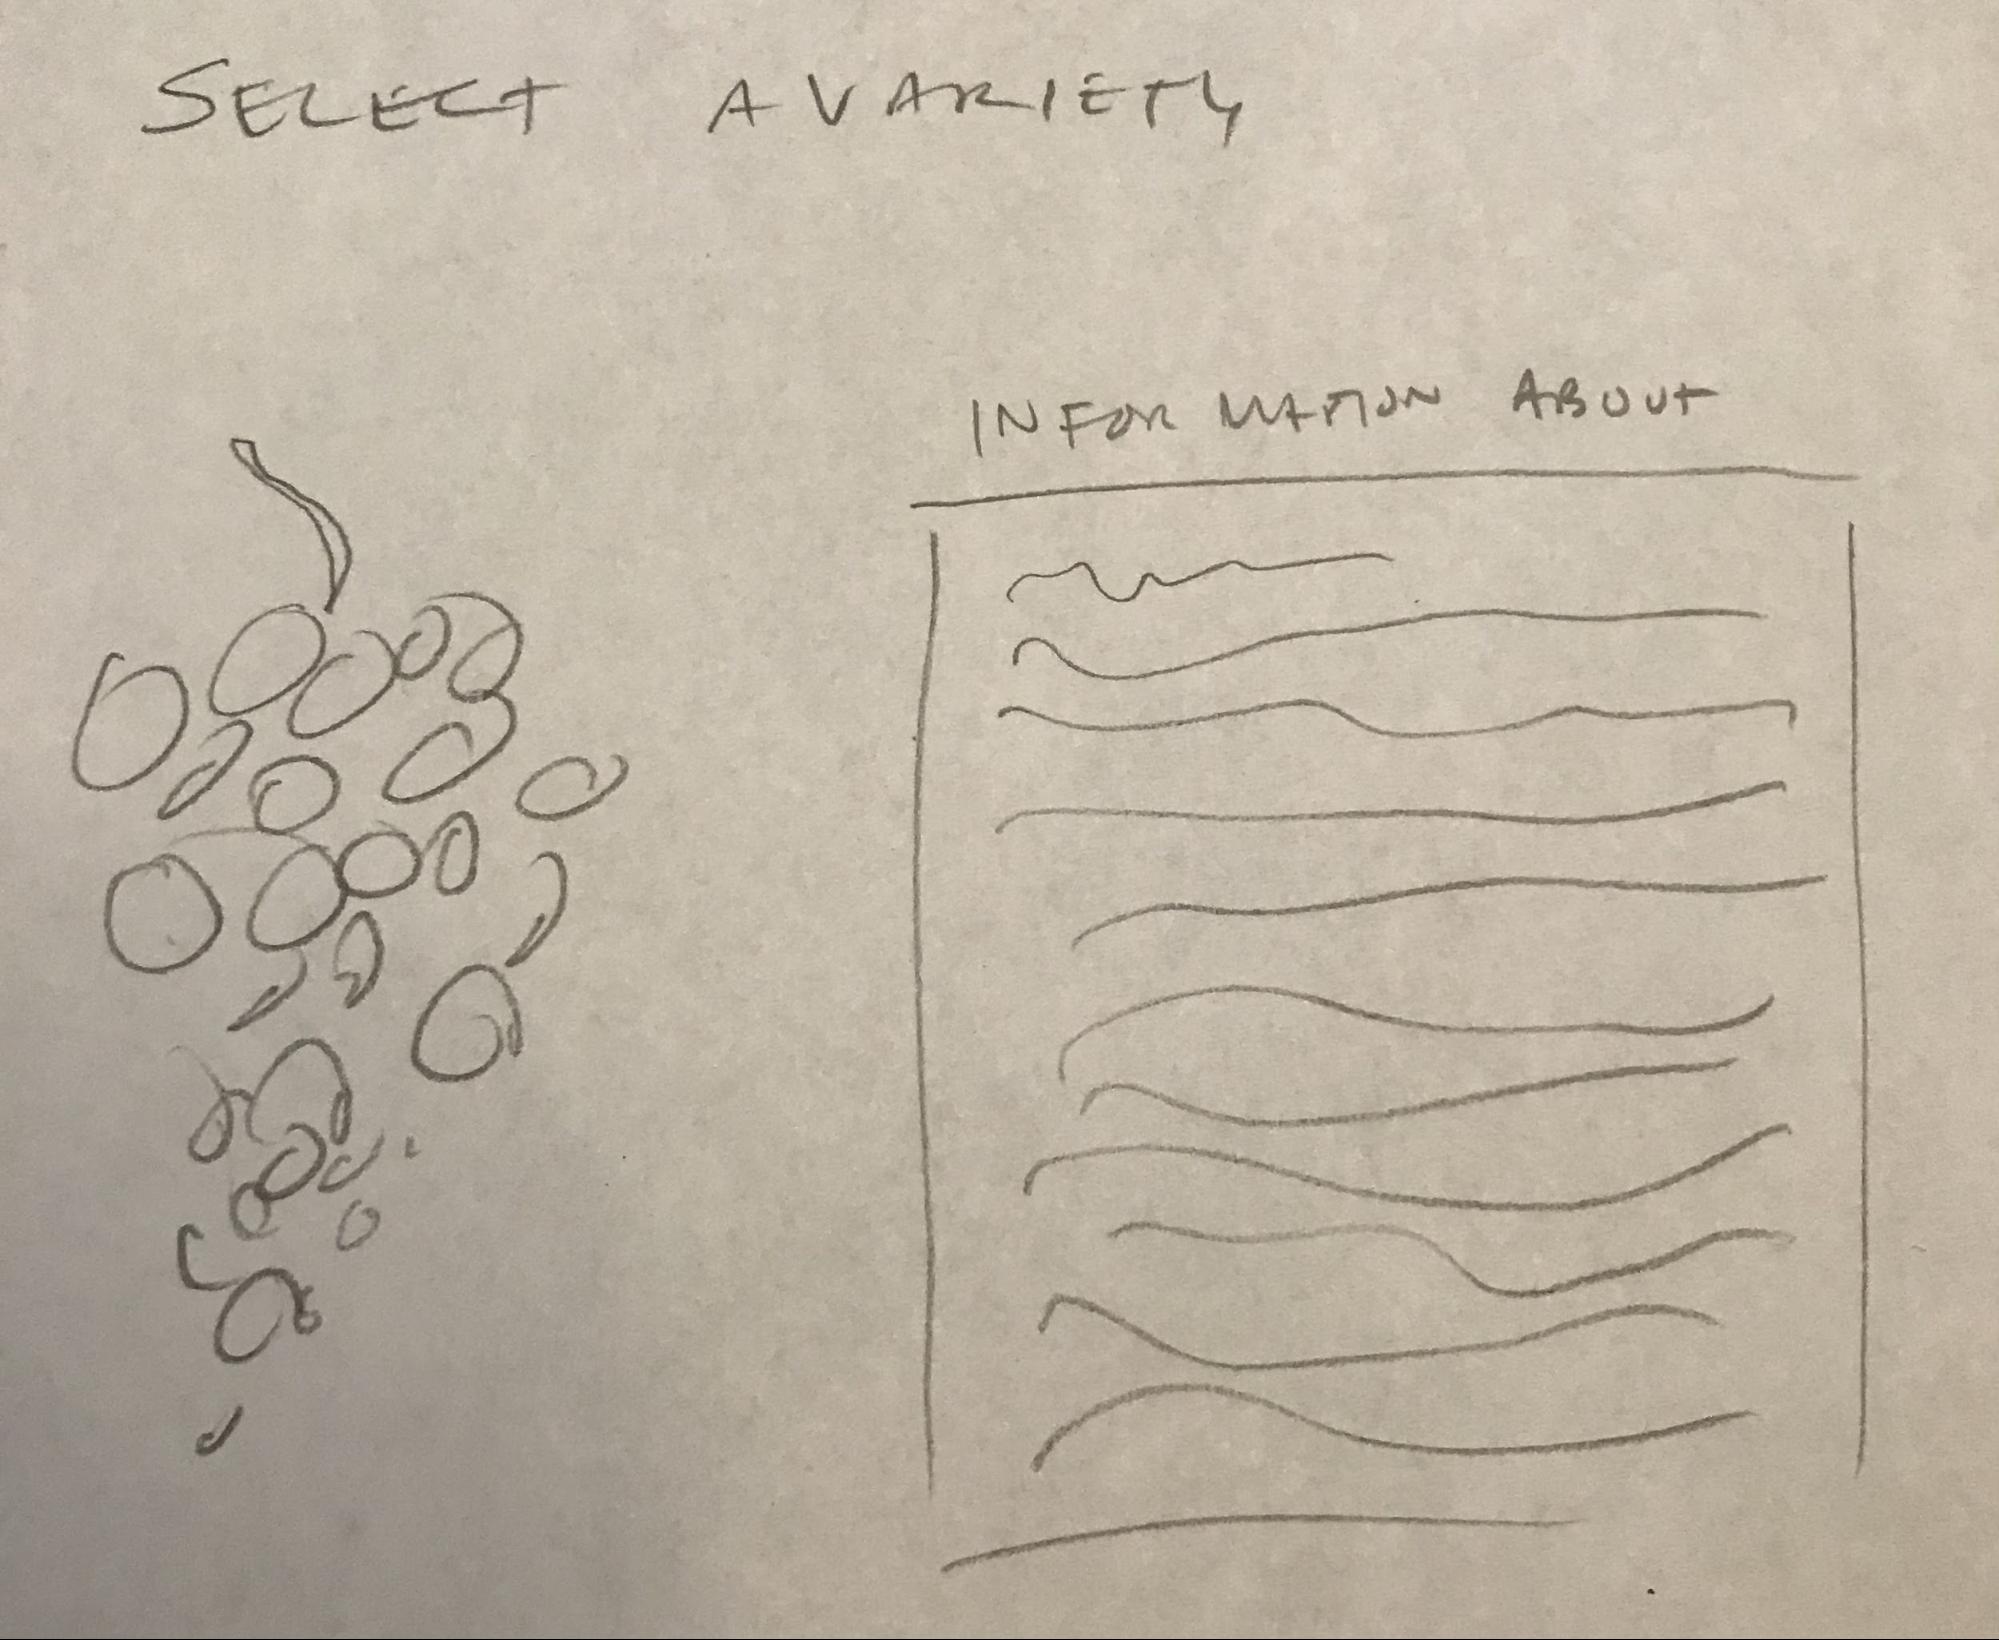 SELECT A VARIETY
INFORMATION ABOUT